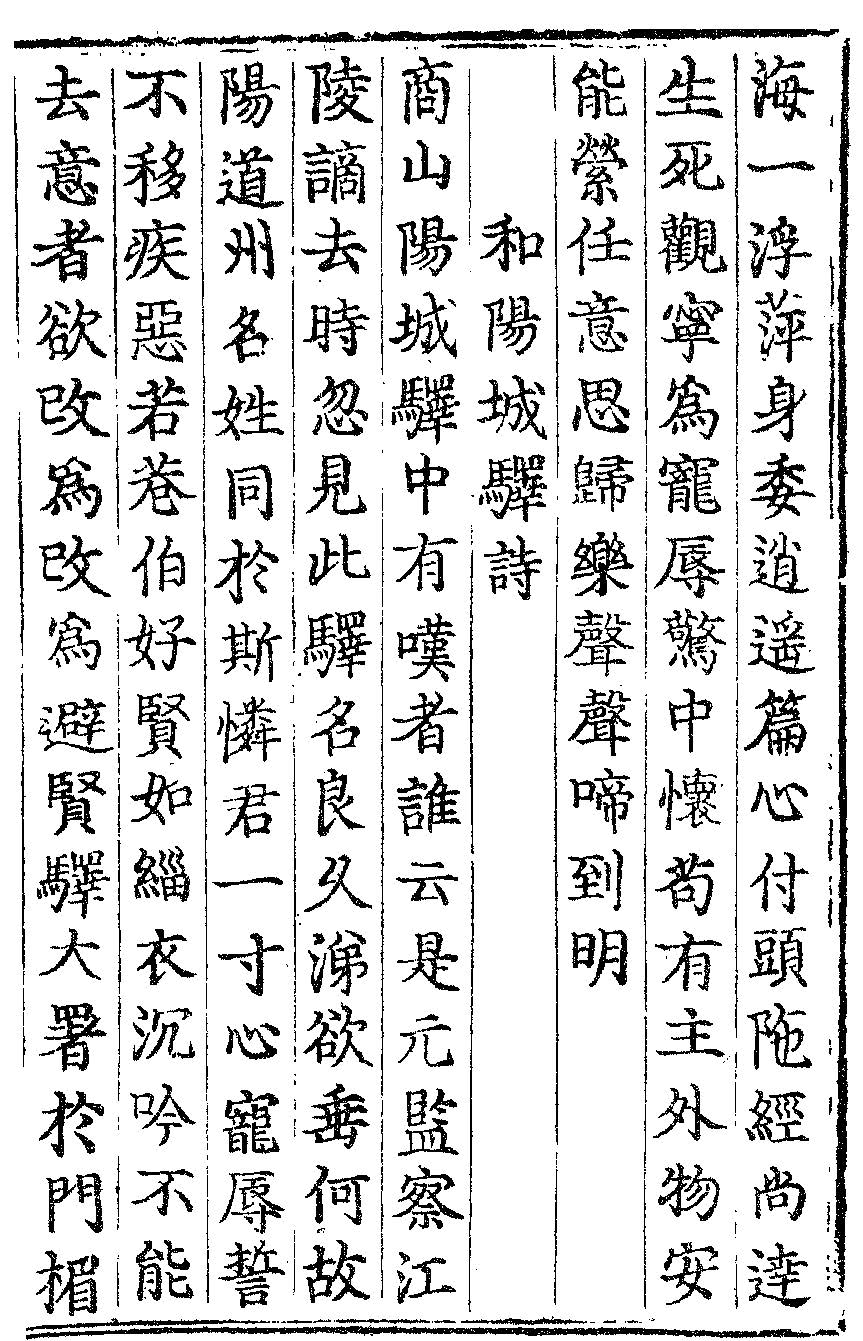 海一浮萍身委逍遥篇心付頭陁經尚達
生死觀寧爲寵辱驚中懷茍有主外物安
能縈任意思歸樂聲聲啼到明
和陽城驛詩
商山陽城驛中有嘆者誰云是元監察江
陵謫去時忽見此驛名良久涕欲垂何故
陽道州名姓同於斯憐君一寸心寵辱誓
不移疾惡若巷伯好賢如緇衣沉吟不能
去意者欲改爲改爲避賢驛大署於門楣